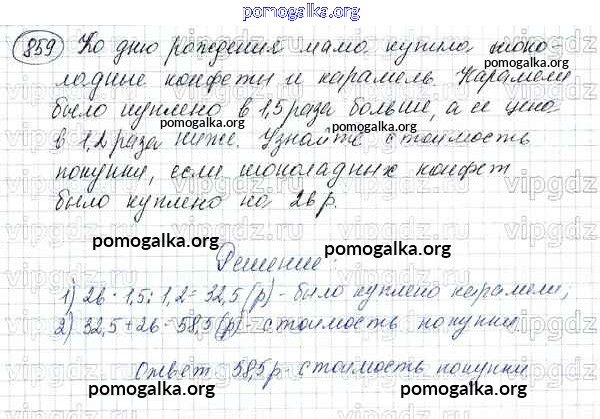 pomogalka.org
859 Ко дню рождения мама купила шоко-
ладные конфеты и карамель. Карамели
было куплено в 1,5 раза больше, а ее цена
pomogalka.org
в 1,2 раза ниже. Узнайте стоимость
покупки, если шоколадных конфет
было куплено на 26 р.
pomogalka.org pomogalka.org
Решение:
1) 26 · 1,5 : 1,2 = 32,5 (р) - было куплено карамели;
2) 32,5 + 26 = 58,5 (р) - стоимость покупки
Ответ 58,5 р - стоимость покупки
pomogalka.org pomogalka.org